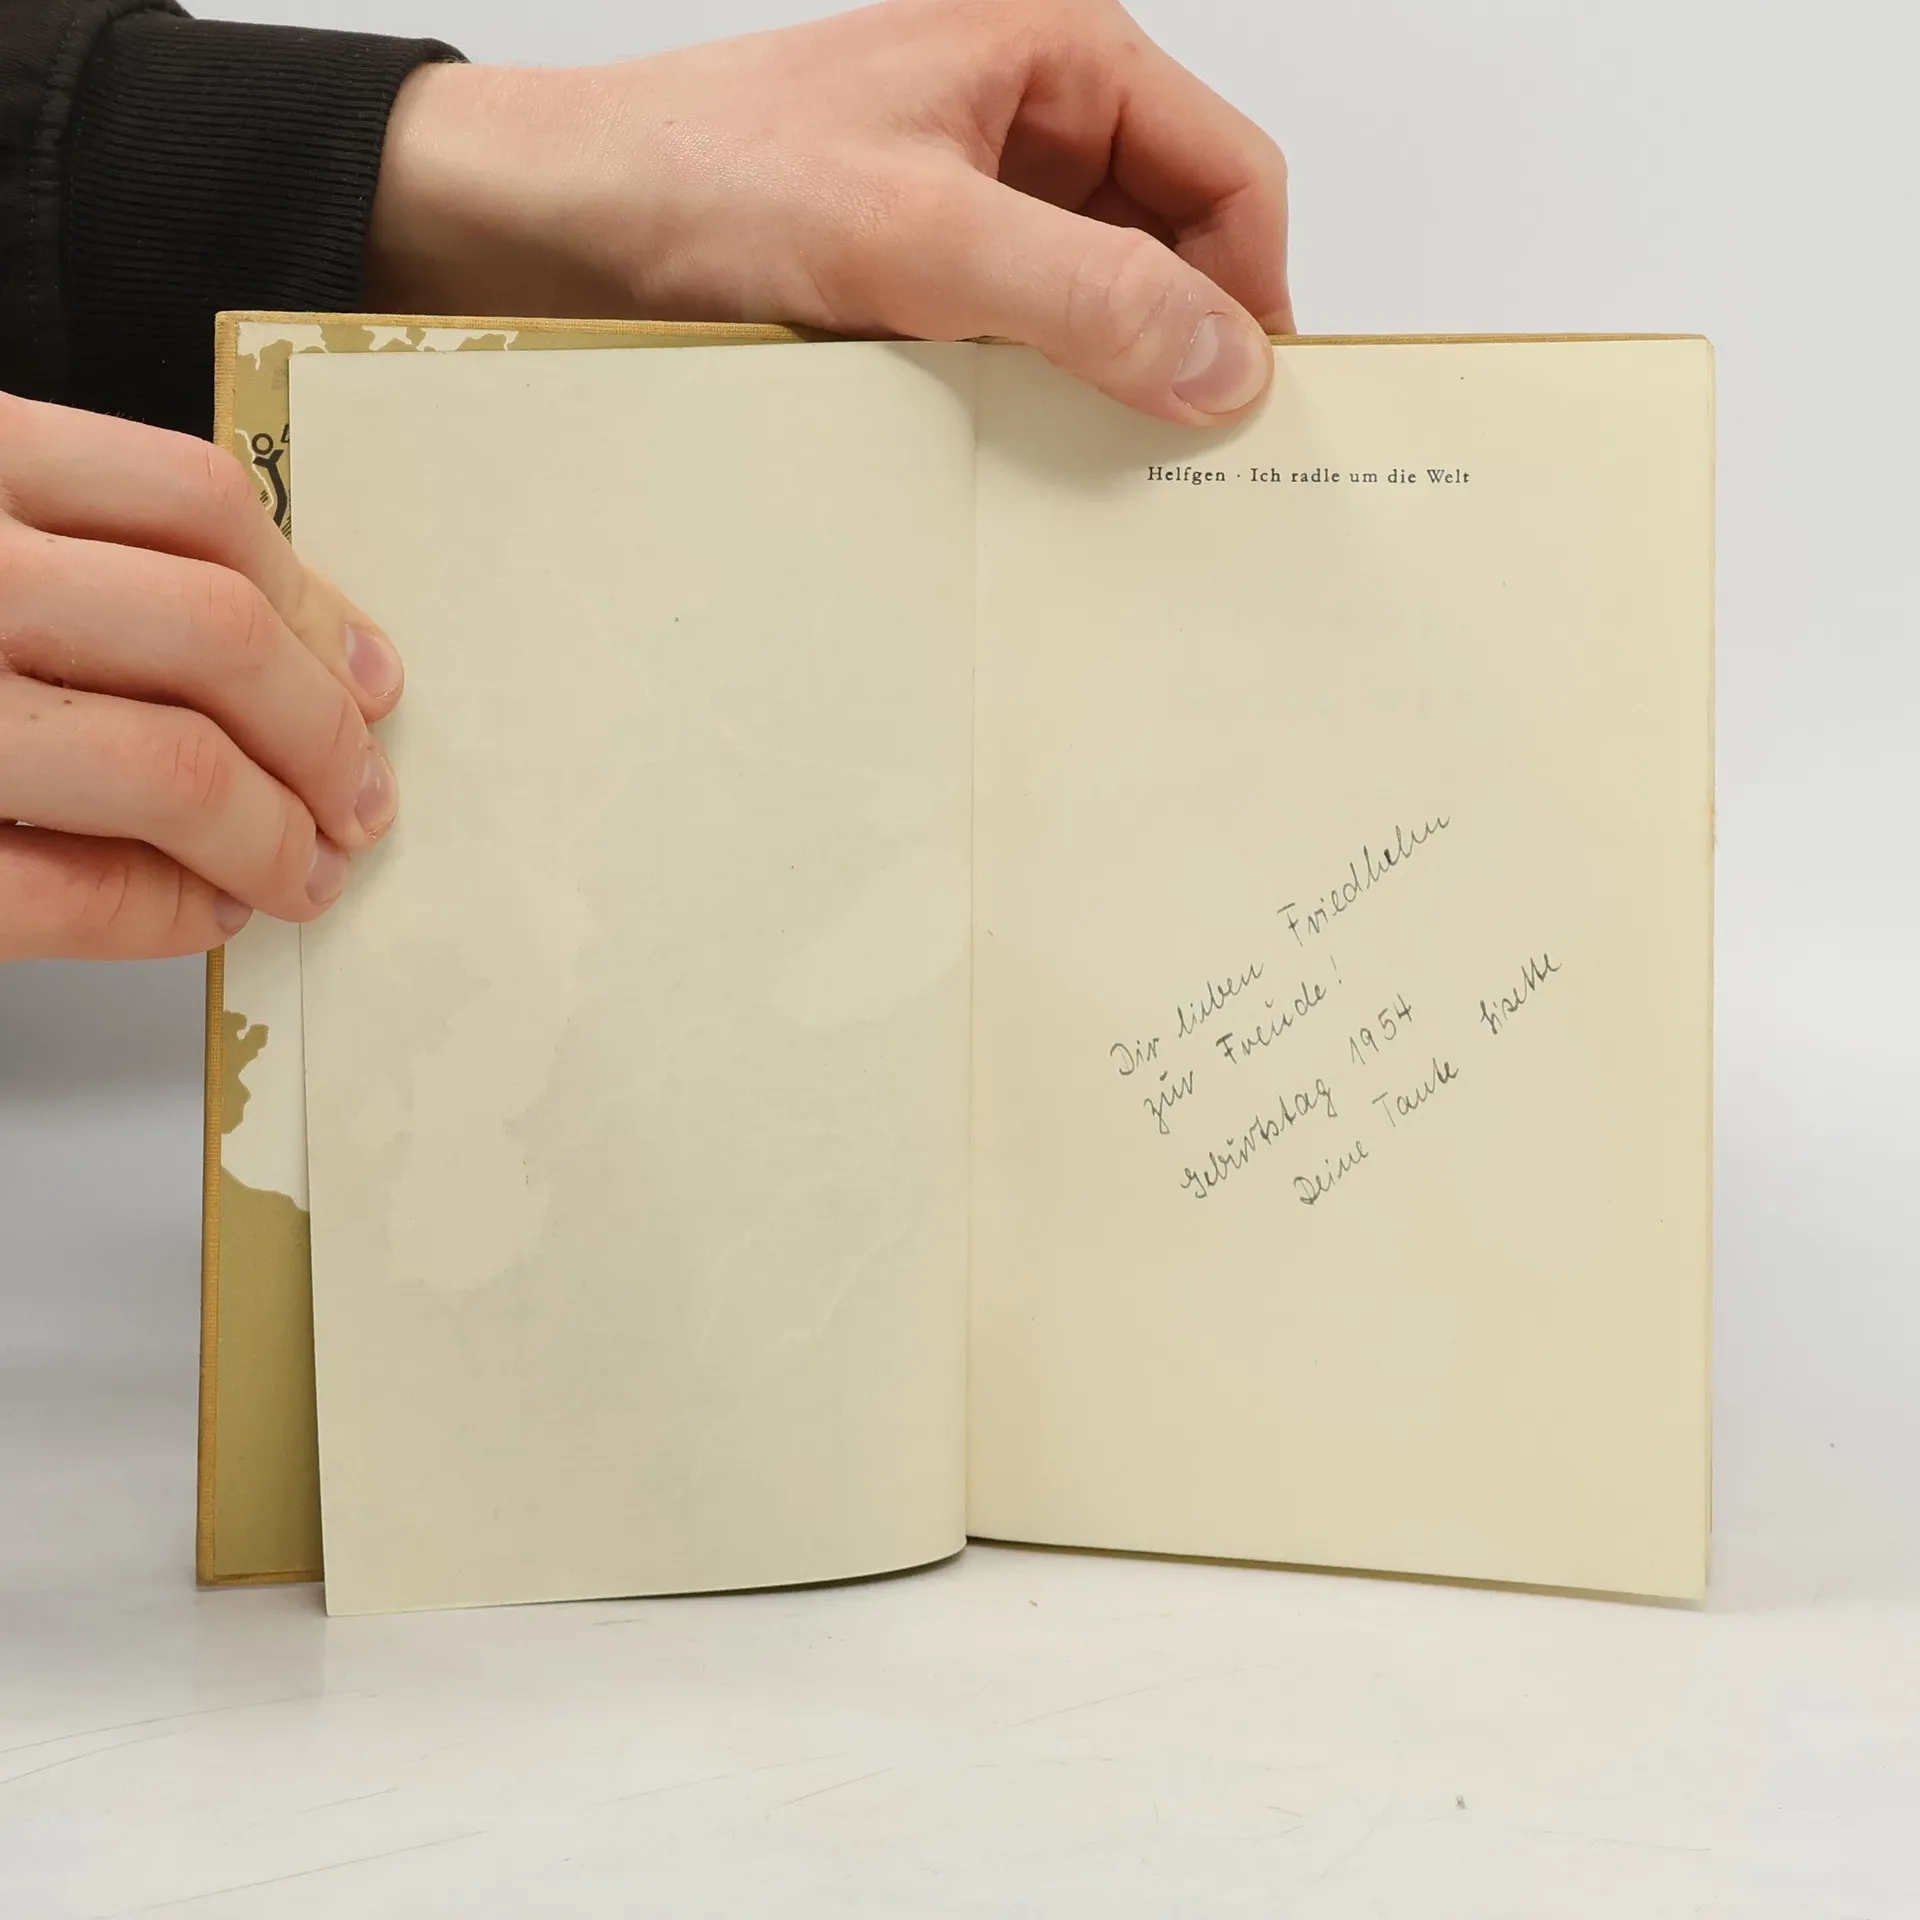 Helfgen · Ich radle um die Welt
Dir lieben Friedhelm
zur Freude!
Geburtstag 1954
Deine Tante Lisette